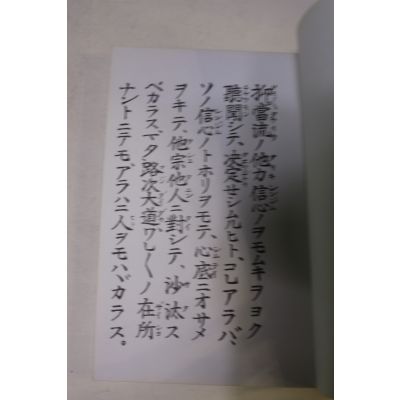 抑當流ノ他力信心ノヲモムキヲヨク
聽聞シテ、決定セシムルヒト、コレアラバ、
ソノ信心ノトホリヲモテ、心底ニオサメ
ヲキテ、他宗他人ニ對シテ、沙汰ス
ベカラス。マタ路次大道ワレ〱ノ在所
ナントニテモ、アラハニ人ヲモハバカラス。